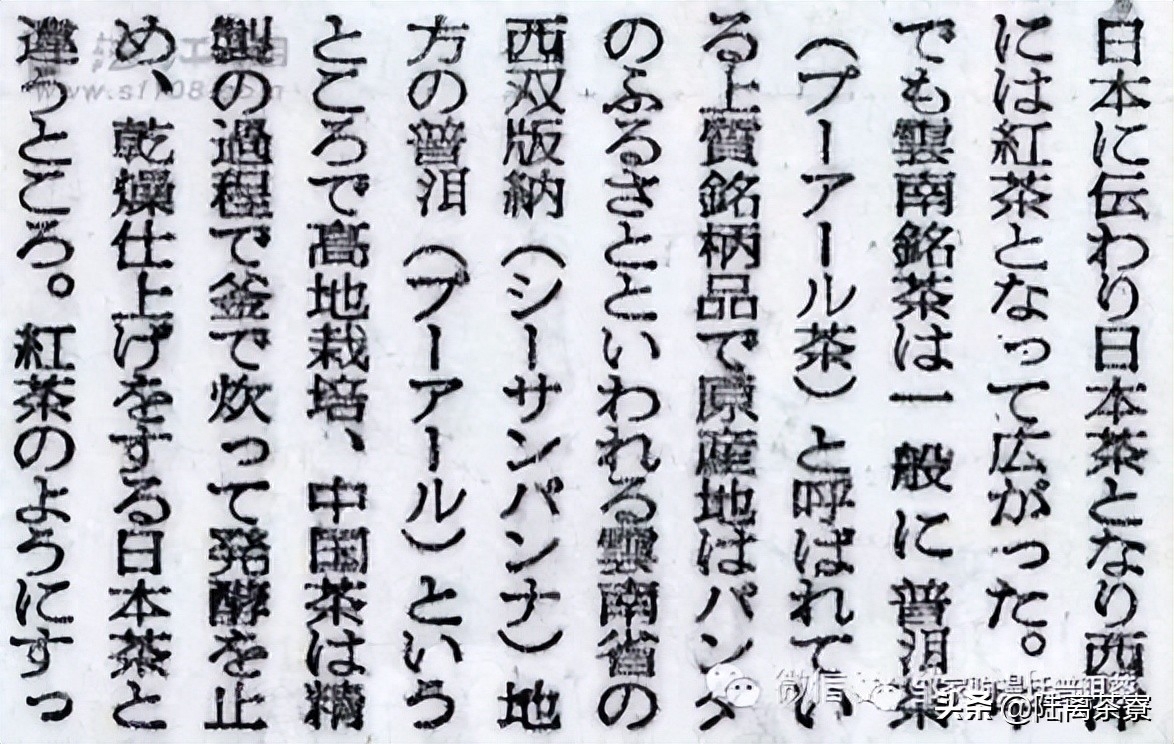 日本に伝わり日本茶となり西
には紅茶となって広がった。
でも雲南銘茶は一般に普洱茶
（プーアール茶）と呼ばれてい
る上質銘柄品で原産地はパンダ
のふるさとといわれる雲南省の
西双版納（シーサンパンナ）地
方の普洱（プーアール）という
ところで高地栽培、中国茶は精
製の過程で釜で炊って発酵を止
め、乾燥仕上げをする日本茶と
違うところ。紅茶のようにすっ
微信
头条 @陆离茶寮